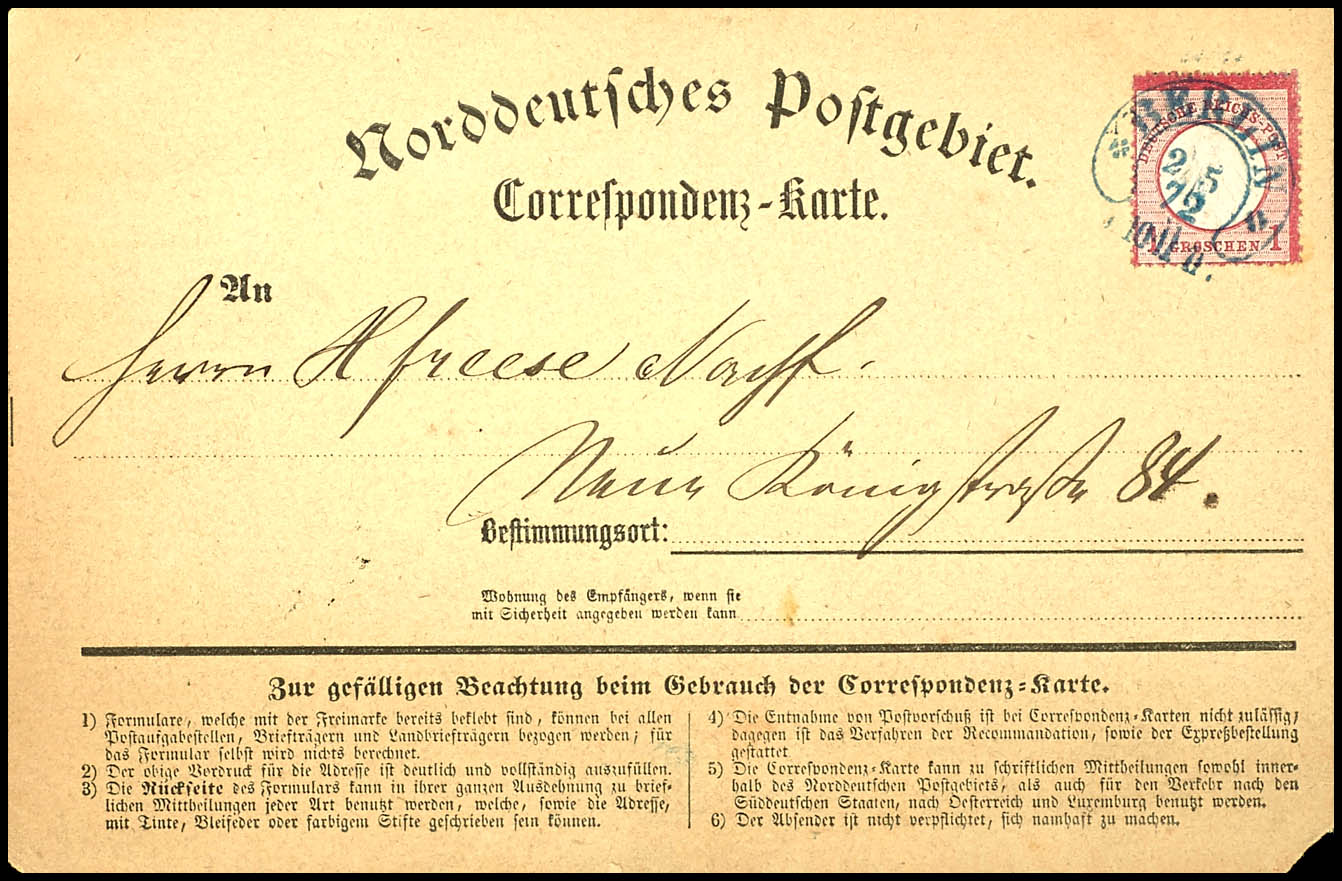 Norddeutsches Postgebiet.
Correspondenz-Karte.
DEUTSCHE REICHS-POST
BERLIN
2 5
72
1 GROSCHEN 1
An
Herrn H Freese Nachf.
Neue Königstraße 84.
Bestimmungsort:
Wohnung des Empfängers, wenn sie
mit Sicherheit angegeben werden kann
Zur gefälligen Beachtung beim Gebrauch der Correspondenz-Karte.
1) Formulare, welche mit der Freimarke bereits beklebt sind, können bei allen
Postaufgabestellen, Briefträgern und Landbriefträgern bezogen werden; für
das Formular selbst wird nichts berechnet.
2) Der obige Vordruck für die Adresse ist deutlich und vollständig auszufüllen.
3) Die Rückseite des Formulars kann in ihrer ganzen Ausdehnung zu brief-
lichen Mittheilungen jeder Art benutzt werden, welche, sowie die Adresse,
mit Tinte, Bleifeder oder farbigem Stifte geschrieben sein können.
4) Die Entnahme von Postvorschuß ist bei Correspondenz-Karten nicht zulässig;
dagegen ist das Verfahren der Recommandation, sowie der Expreßbestellung
gestattet
5) Die Correspondenz-Karte kann zu schriftlichen Mittheilungen sowohl inner-
halb des Norddeutschen Postgebiets, als auch für den Verkehr nach den
Süddeutschen Staaten, nach Oesterreich und Luxemburg benutzt werden.
6) Der Absender ist nicht verpflichtet, sich namhaft zu machen.